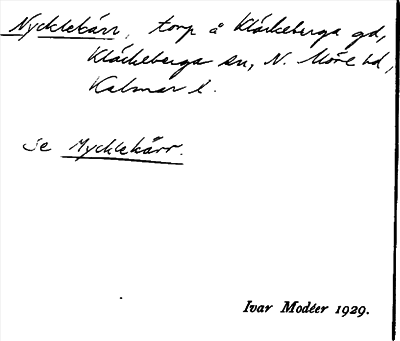 Nycklekärr, torp å Kläckeberga gd,
Kläckeberga sn, N. Möre hd,
Kalmar l.
Se Mycklekärr.
Ivar Modéer 1929.